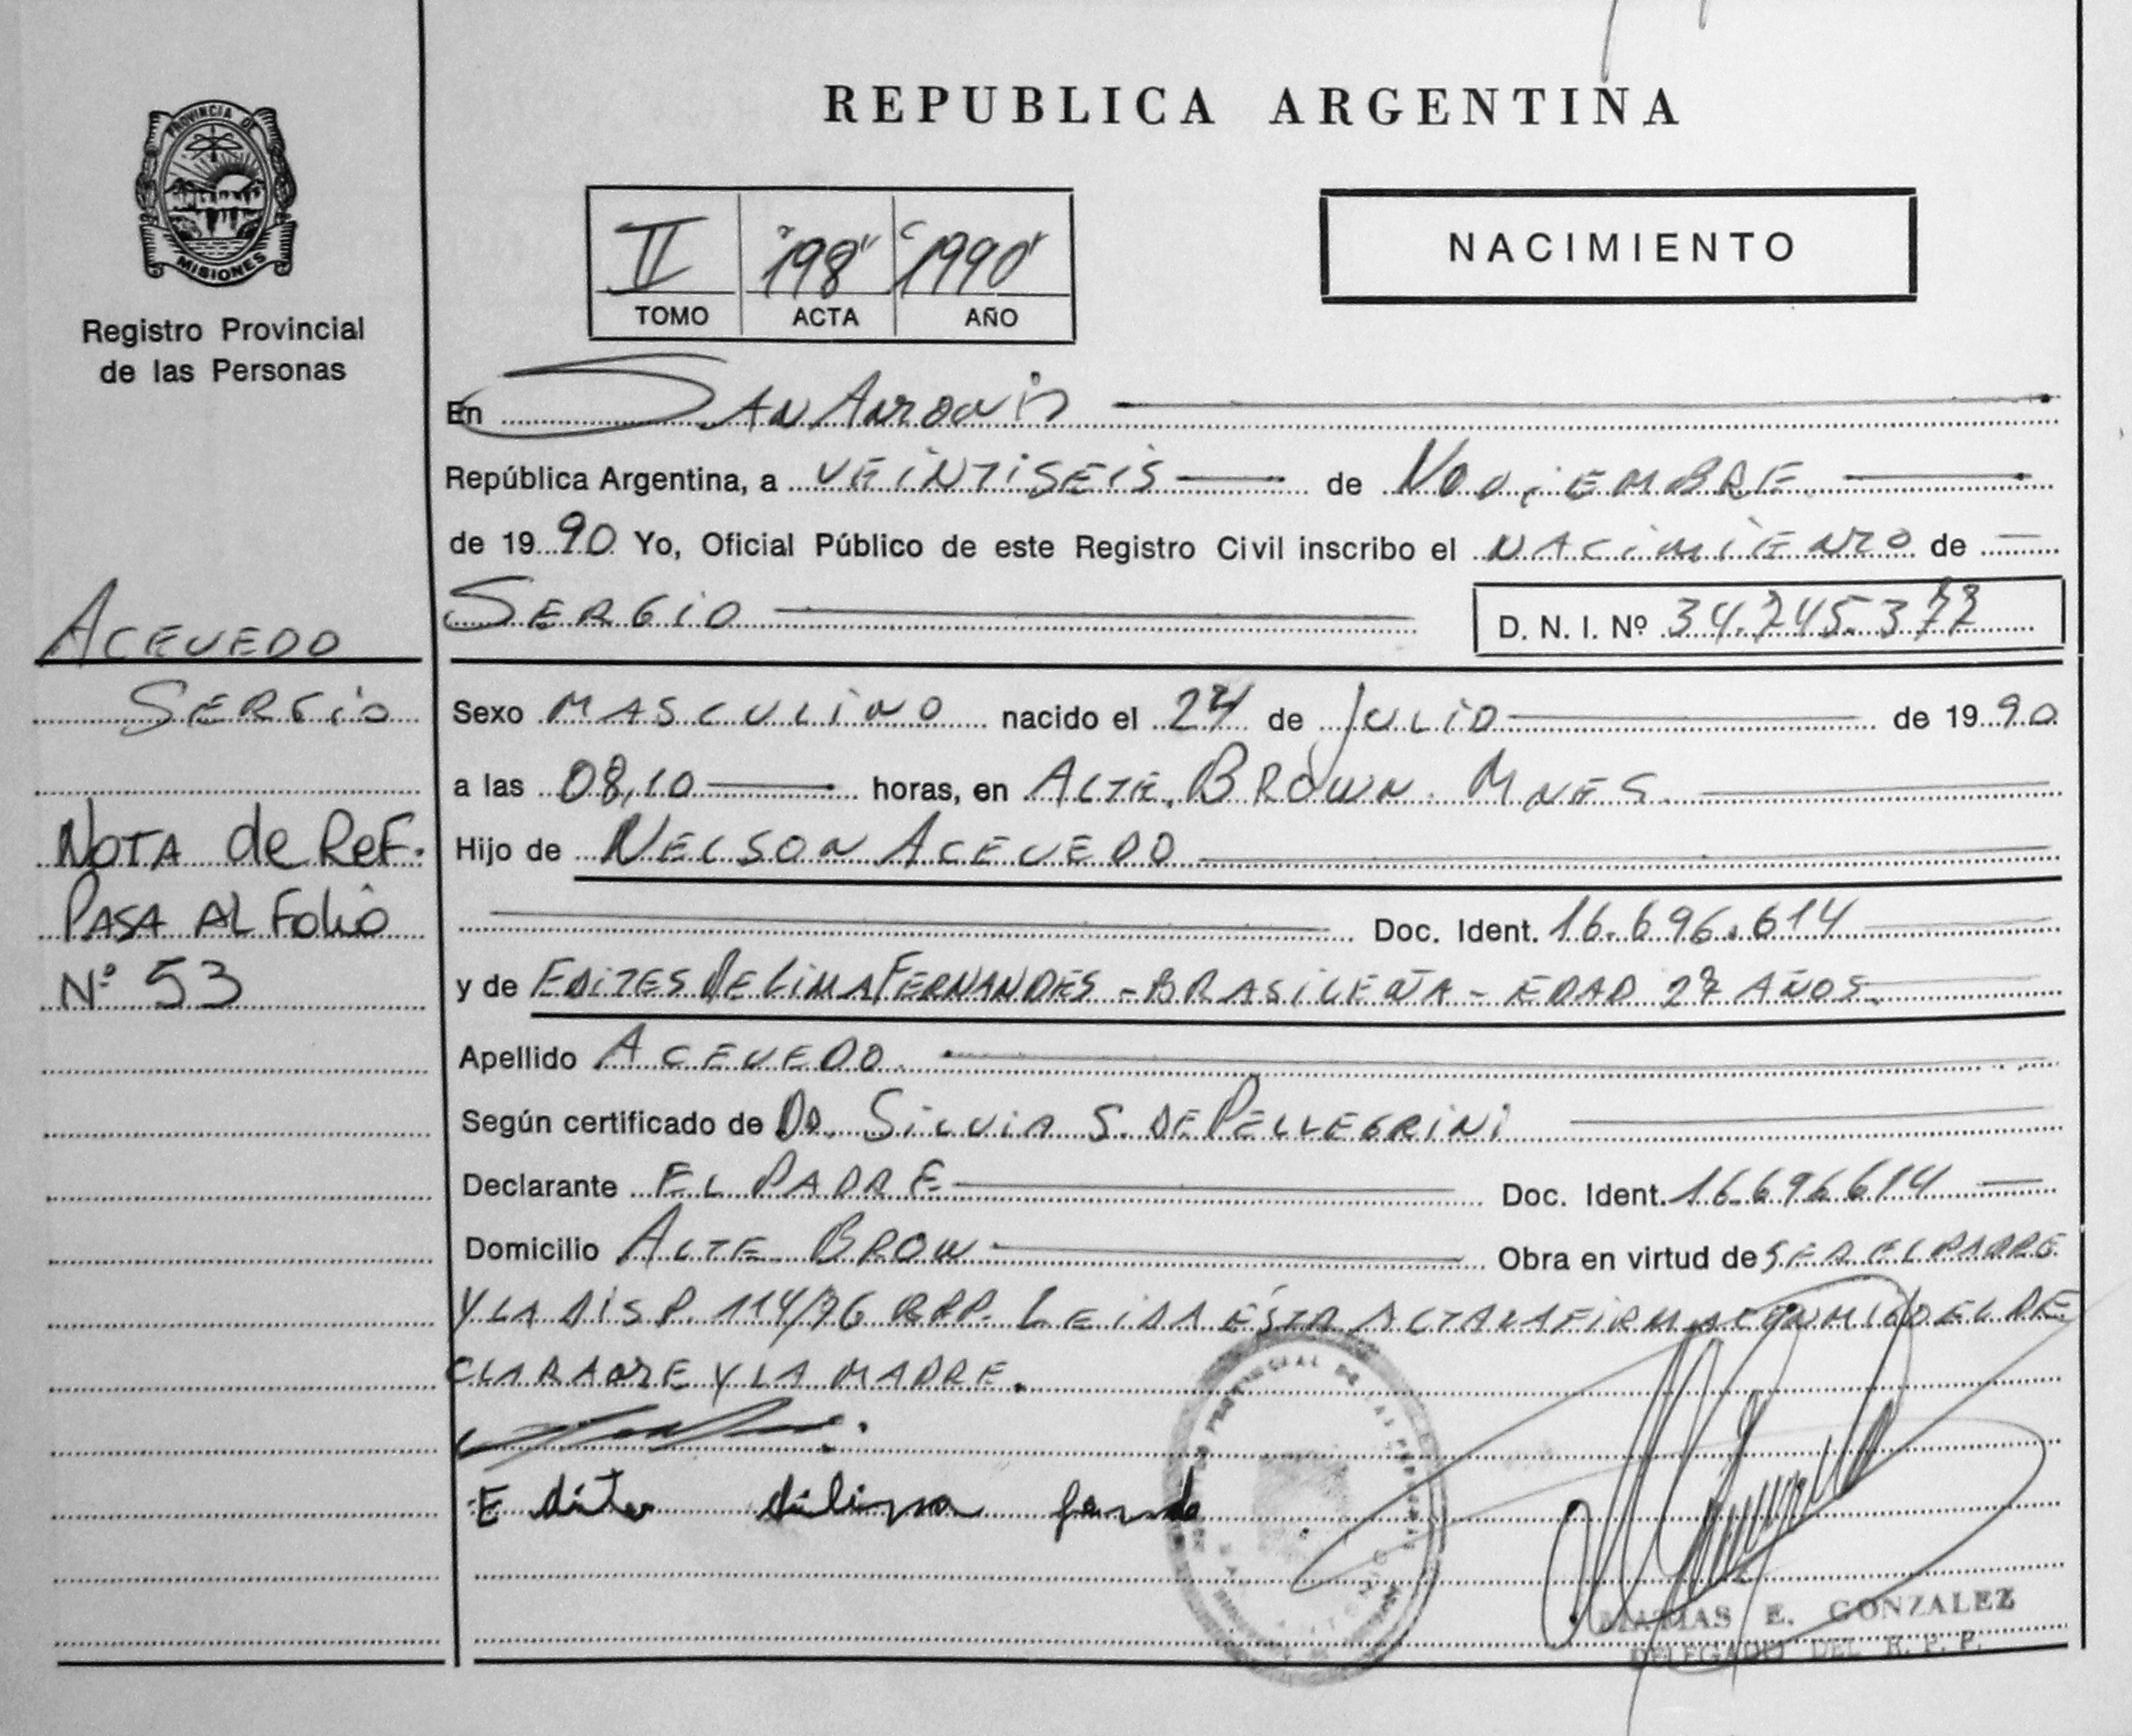 PROVINCIA DE
MISIONES
Registro Provincial
de las Personas
ACEVEDO
SERGIO
NOTA de REF.
PASA AL Folio
Nº 53
REPUBLICA ARGENTINA
II "198" "1990"
TOMO ACTA AÑO
NACIMIENTO
En SAN ANTONIO
República Argentina, a VEINTISEIS de NOVIEMBRE
de 1990 Yo, Oficial Público de este Registro Civil inscribo el NACIMIENTO de
SERGIO D. N. I. Nº 34.745.377
Sexo MASCULINO nacido el 24 de JULIO de 1990
a las 08,10 horas, en ALTE. BROWN. MNES.
Hijo de NELSON ACEVEDO
Doc. Ident. 16.696.614
y de EDITES DE LIMA FERNANDES - BRASILEÑA - EDAD 27 AÑOS.
Apellido ACEVEDO.
Según certificado de DR. SILVIA S. DE PELLEGRINI
Declarante EL PADRE Doc. Ident. 16.696614
Domicilio ALTE BROW Obra en virtud de SER EL PADRE
Y LA DISP. 114/76 RPP. LEIDA ÉSTA ACTA LA FIRMA CONMIGO EL DE
CLARANTE Y LA MADRE.
MATIAS E. GONZALEZ
DELEGADO DEL R. P. P.